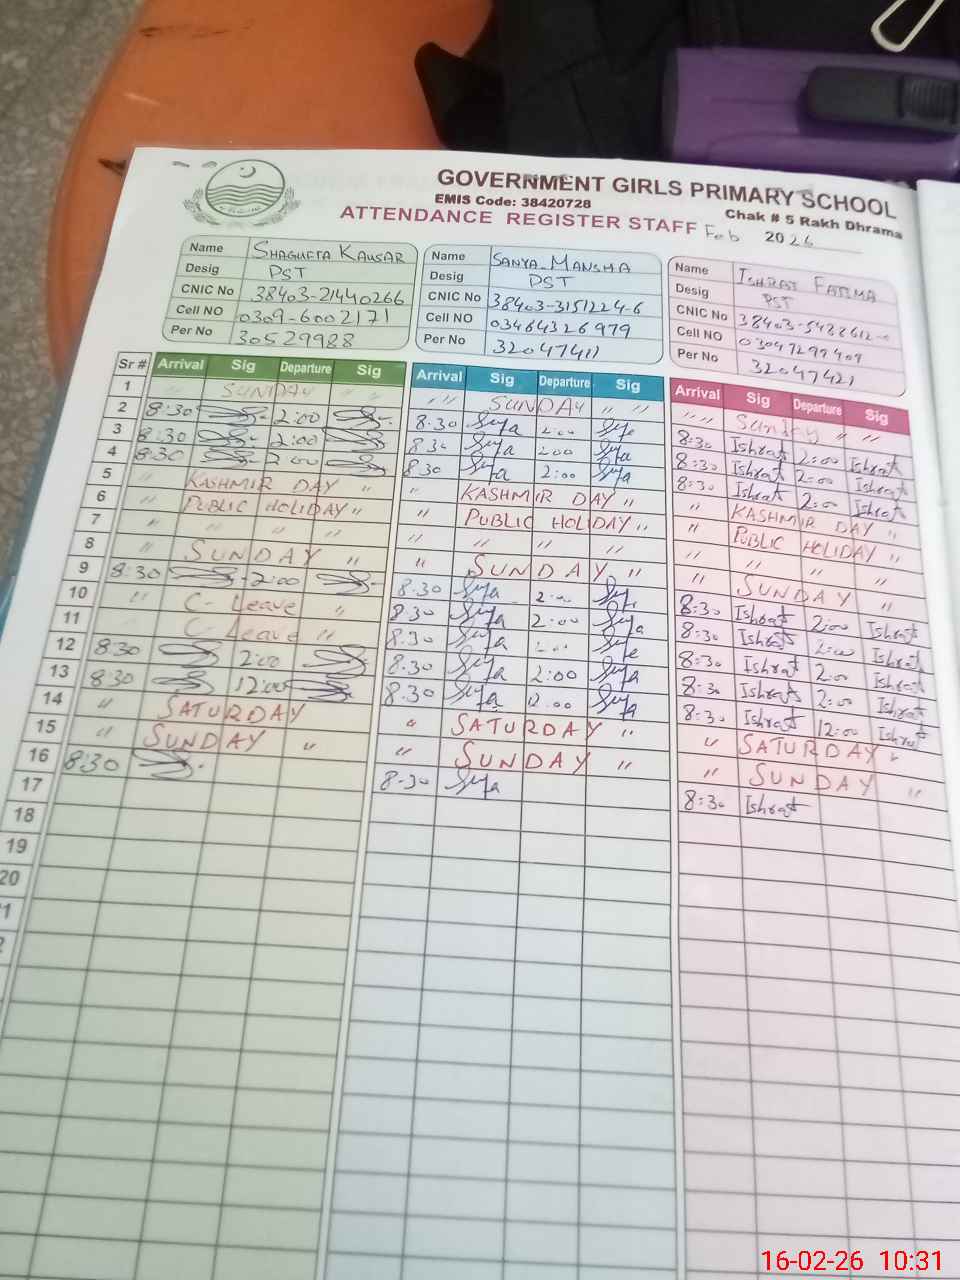 GOVERNMENT GIRLS PRIMARY SCHOOL
EMIS Code: 38420728
Chak # 5 Rakh Dhrama
ATTENDANCE REGISTER STAFF Feb 2026
Name SHAGUFTA KAUSAR
Desig PST
CNIC No 38403-21440266
Cell NO 0309-6002171
Per No 30529928
Name SANYA MANSHA
Desig PST
CNIC No 38403-3151224-6
Cell NO 03464326979
Per No 32047411
Name ISHRAT FATIMA
Desig PST
CNIC No 38403-5488612-0
Cell NO 03047299409
Per No 32047421
Sr # Arrival Sig Departure Sig Arrival Sig Departure Sig Arrival Sig Departure Sig
1 " SUNDAY " " " SUNDAY " " " " Sunday " "
2 8:30 2:00 8.30 2:00 8:30 Ishrat 2:00 Ishrat
3 8:30 2:00 8.30 2:00 8:30 Ishrat 2:00 Ishrat
4 8:30 2:00 8.30 2:00 8:30 Ishrat 2:00 Ishrat
5 " KASHMIR DAY " " KASHMIR DAY " " KASHMIR DAY "
6 " PUBLIC HOLIDAY " " PUBLIC HOLIDAY " " PUBLIC HOLIDAY "
7 " " " " " " " " " " "
8 " SUNDAY " " SUNDAY " " SUNDAY "
9 8:30 2:00 8.30 2:00 8:30 Ishrat 2:00 Ishrat
10 " C-Leave " 8.30 2:00 8:30 Ishrat 2:00 Ishrat
11 C-Leave " 8:30 8:30 Ishrat 2:00 Ishrat
12 8:30 2:00 8.30 2:00 8:30 Ishrat 2:00 Ishrat
13 8:30 12:00 8.30 12:00 8:30 Ishrat 12:00 Ishrat
14 " SATURDAY " SATURDAY " " SATURDAY "
15 " SUNDAY " " SUNDAY " " SUNDAY "
16 8:30 8-30 8:30 Ishrat
17
18
19
20
16-02-26 10:31